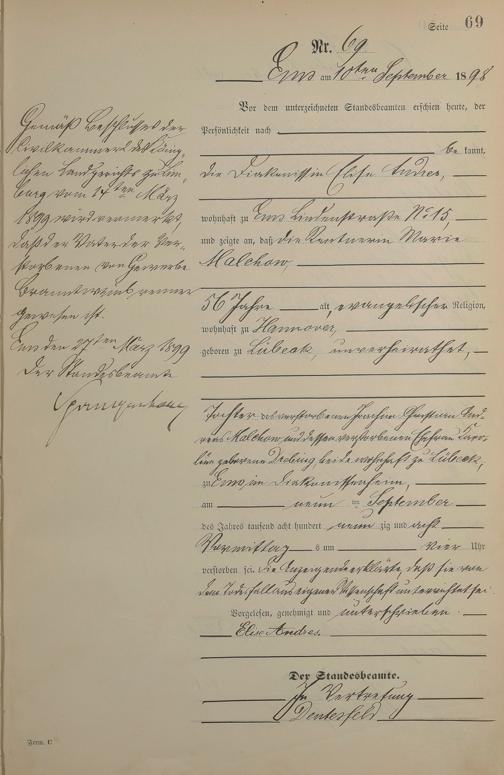 Seite 69
Nr. 69
Ems am 10ten September 1898
Vor dem unterzeichneten Standesbeamten erschien heute, der
Persönlichkeit nach
be kannt,
die Diakonissin Elise Andres,
wohnhaft zu Ems Lindenstraße No 15,
und zeigte an, daß die Rentnerin Marie
Malchow,
56 Jahre alt, evangelischer Religion,
wohnhaft zu Hannover,
geboren zu Lübeck, unverheirathet,
Tochter des verstorbenen Joachim Christian And-
reas Malchow und dessen verstorbenen Ehefrau Karo-
line geborene beide wohnhaft zu Lübeck,
zu Ems, im Diakonissenheim,
am neun ten September
des Jahres tausend acht hundert neun zig und acht
Vormittags um vier Uhr
verstorben sei. Die Anzeigende erklärte, daß sie von
dem Todesfall aus eigener Wissenschaft unterrichtet sei.
Vorgelesen, genehmigt und unterschrieben.
Elise Andres.
Der Standesbeamte.
In Vertretung
Gemäß Beschlusses der
Civilkammer des König-
lichen Landgerichts zu Lim-
burg vom 14ten März
1899 wird vermerkt,
daß der Vater der Ver-
storbenen von Gewerbe
Branntweinbrenner
gewesen ist.
Ems den März 1899
Der Standesbeamte
Form. C